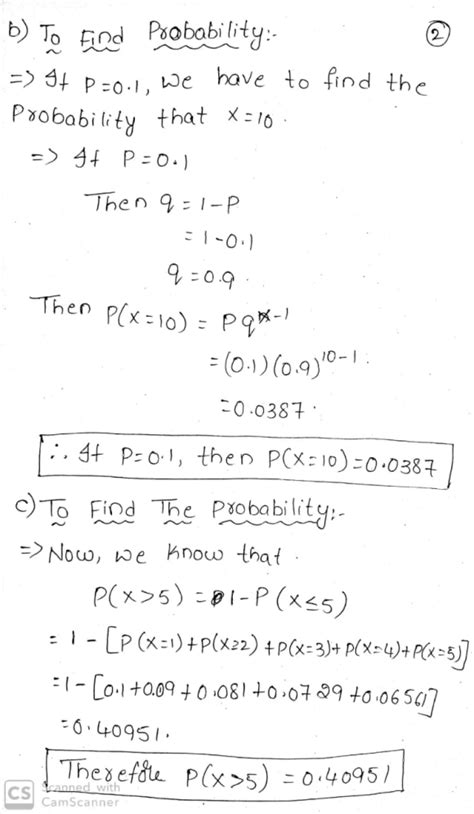 b) To Find Probability:-
2
=> If P=0.1, we have to find the
Probability that X=10.
=> If P=0.1
Then q=1-P
=1-0.1
q=0.9.
Then P(X=10) = Pq^x-1
=(0.1)(0.9)^10-1.
=0.0387.
∴ If P=0.1, then P(X=10)=0.0387
c) To Find The Probability:-
=> Now, we know that.
P(X>5) = 1-P(X≤5)
= 1-[P(X=1)+P(X=2)+P(X=3)+P(X=4)+P(X=5)]
=1-[0.1+0.09+0.081+0.0729+0.06561]
=0.40951.
Therefore P(X>5) = 0.40951
CS Scanned with
CamScanner